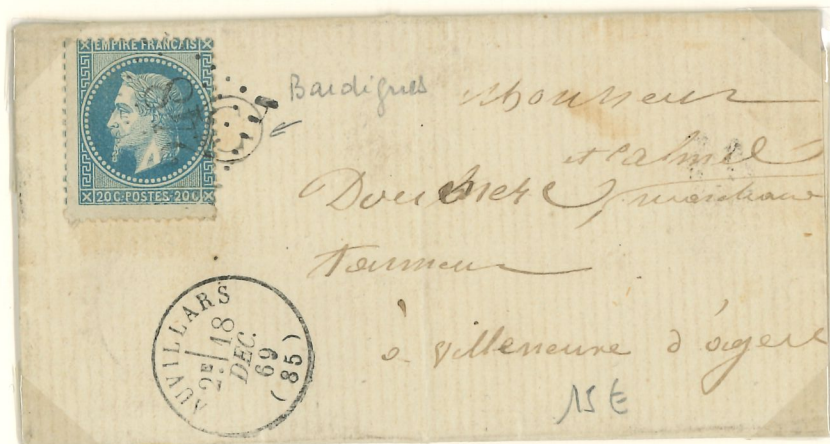 EMPIRE FRANÇAIS
20C·POSTES·20C
Bardigues
Monsieur
et Calmel
marchand
tanneur
à Villeneuve d'agen
AUVILLARS
2E 18
DEC.
69
(85)
15 €